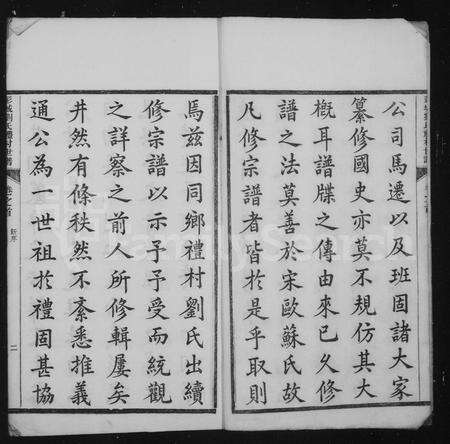 公司馬遷以及班固諸大家
纂修國史亦莫不規仿其大
概耳譜牒之傳由來已久修
譜之法莫善於宋歐蘇氏故
凡修宗譜者皆於是乎取則
焉茲因同鄉禮村劉氏出續
修宗譜以示予予受而統觀
之詳察之前人所修輯屢矣
井然有條秩然不紊悉推義
通公為一世祖於禮固甚協
卷之首
新序
二
FamilySearch